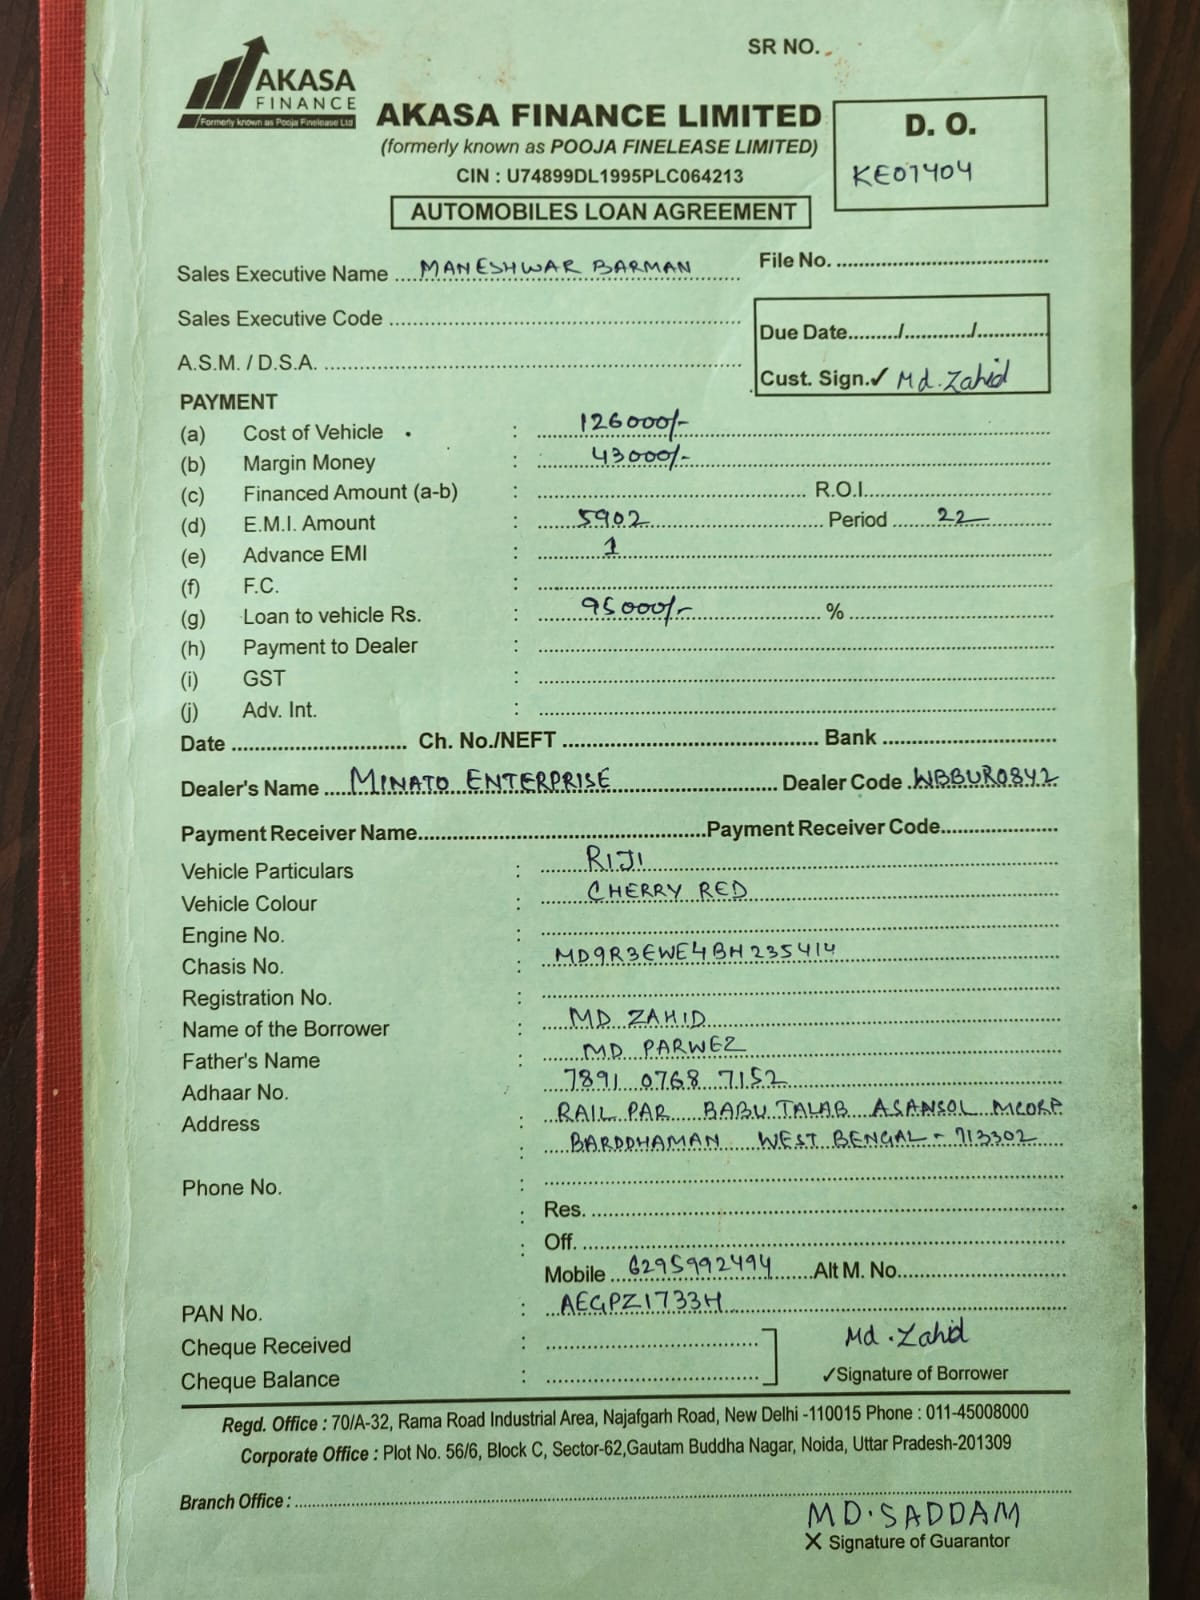 SR NO.
AKASA
FINANCE
Formerly known as Pooja Finelease Ltd
AKASA FINANCE LIMITED
(formerly known as POOJA FINELEASE LIMITED)
CIN : U74899DL1995PLC064213
AUTOMOBILES LOAN AGREEMENT
D. O.
KE07404
Sales Executive Name MANESHWAR BARMAN
File No.
Sales Executive Code
Due Date / /
A.S.M. / D.S.A.
Cust. Sign.✓ Md. Zahid
PAYMENT
(a) Cost of Vehicle : 126000/-
(b) Margin Money : 43000/-
(c) Financed Amount (a-b) : R.O.I.
(d) E.M.I. Amount : 5902 Period 22
(e) Advance EMI : 1
(f) F.C. :
(g) Loan to vehicle Rs. : 95000/- %
(h) Payment to Dealer :
(i) GST :
(j) Adv. Int. :
Date Ch. No./NEFT Bank
Dealer's Name MINATO ENTERPRISE Dealer Code WBBUR0842
Payment Receiver Name Payment Receiver Code
Vehicle Particulars : RIJI
Vehicle Colour : CHERRY RED
Engine No. :
Chasis No. : MD9R3EWE4BH235414
Registration No. :
Name of the Borrower : MD ZAHID
Father's Name : MD PARWEZ
Adhaar No. 7891 0768 7152
Address : RAIL PAR BABU TALAB ASANSOL MCORP
: BARDDHAMAN WEST BENGAL - 713302
Phone No. :
: Res.
: Off.
Mobile 6295992494 Alt M. No.
PAN No. : AEGPZ1733H
Cheque Received :
Md. Zahid
Cheque Balance :
✓Signature of Borrower
Regd. Office : 70/A-32, Rama Road Industrial Area, Najafgarh Road, New Delhi -110015 Phone : 011-45008000
Corporate Office : Plot No. 56/6, Block C, Sector-62,Gautam Buddha Nagar, Noida, Uttar Pradesh-201309
Branch Office :
MD. SADDAM
X Signature of Guarantor